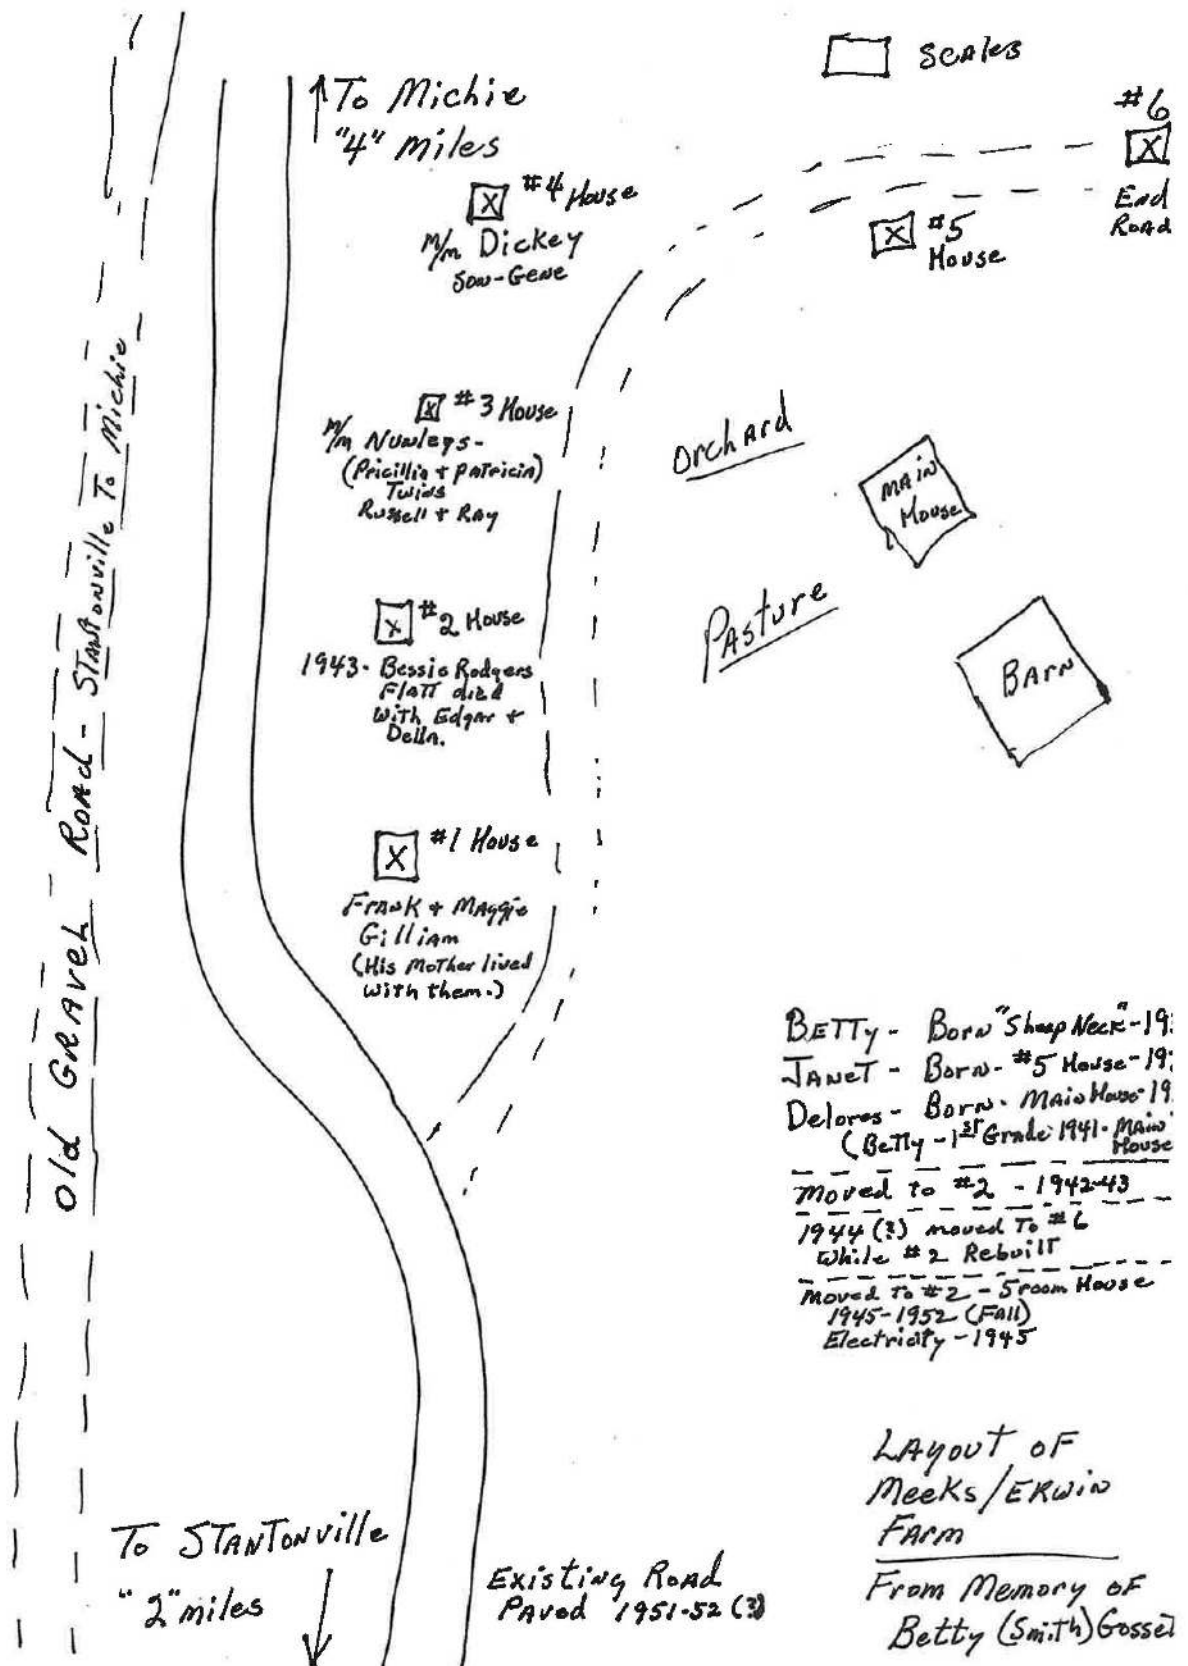 Scales
To Michie
"4" miles
#6
X
End
Road
X #4 House
M/M Dickey
Son-Gene
X #5
House
X #3 House
M/M Nunleys-
(Pricillia + Patricia)
Twins
Russell + Ray
Orchard
Main
House
X #2 House
1943- Bessie Rodgers
Flatt died
With Edgar +
Della.
Pasture
Barn
X #1 House
Frank + Maggie
Gilliam
(His Mother lived
with them.)
Old Gravel Road - Stantonville To Michie
Betty - Born "Sheep Neck" - 19
Janet - Born - #5 House - 19
Delores - Born - Main House - 19
(Betty - 1st Grade 1941 - Main
House
Moved to #2 - 1942-43
1944 (?) moved To #6
While #2 Rebuilt
Moved To #2 - 5 room House
1945-1952 (Fall)
Electricity - 1945
Layout of
Meeks/Erwin
Farm
From Memory of
Betty (Smith) Gosse
To Stantonville
"2" miles
Existing Road
Paved 1951-52 (?)